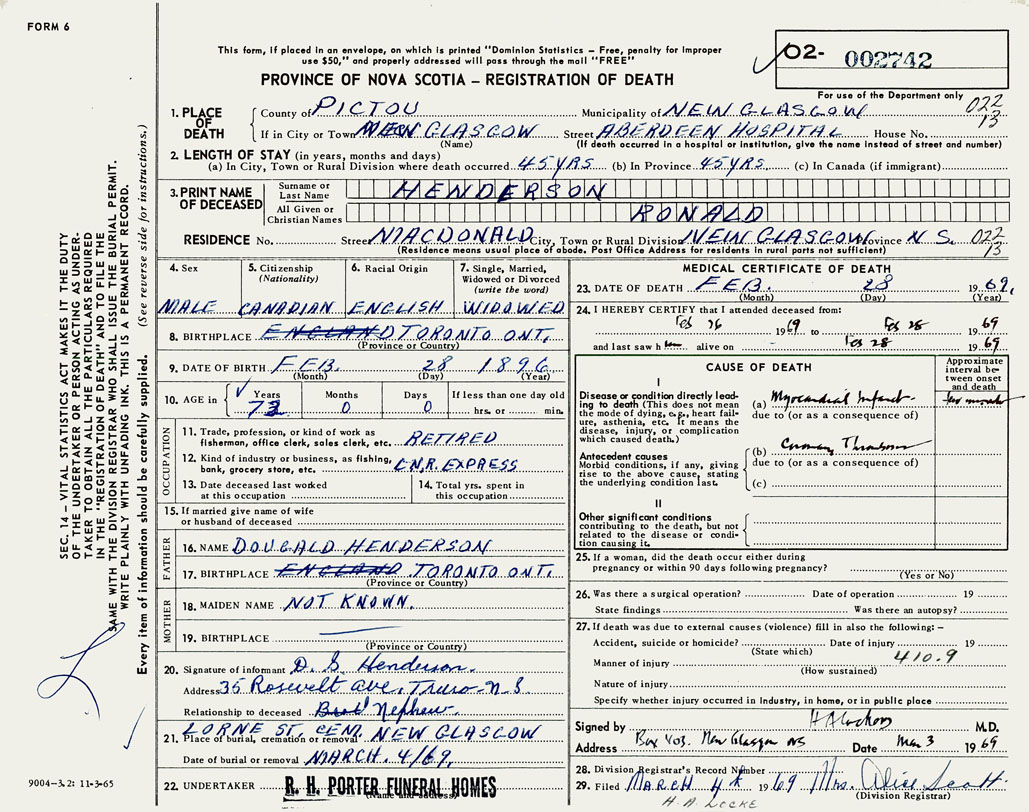 FORM 6
This form, if placed in an envelope, on which is printed "Dominion Statistics – Free, penalty for improper
use $50," and properly addressed will pass through the mail "FREE"
PROVINCE OF NOVA SCOTIA – REGISTRATION OF DEATH
02- 002742
For use of the Department only
022
13
1. PLACE OF DEATH
County of PICTOU Municipality of NEW GLASGOW
If in City or Town NEW GLASGOW Street ABERDEEN HOSPITAL House No.
(Name) (If death occurred in a hospital or institution, give the name instead of street and number)
2. LENGTH OF STAY (in years, months and days)
(a) In City, Town or Rural Division where death occurred 45 YRS (b) In Province 45 YRS. (c) In Canada (if immigrant)
3. PRINT NAME OF DECEASED
Surname or Last Name HENDERSON
All Given or Christian Names RONALD
RESIDENCE No. Street MACDONALD City, Town or Rural Division NEW GLASGOW Province N S. 022
13
(Residence means usual place of abode. Post Office Address for residents in rural parts not sufficient)
4. Sex
MALE
5. Citizenship (Nationality)
CANADIAN
6. Racial Origin
ENGLISH
7. Single, Married, Widowed or Divorced (write the word)
WIDOWED
8. BIRTHPLACE ENGLAND TORONTO ONT.
(Province or Country)
9. DATE OF BIRTH FEB. 28 1896
(Month) (Day) (Year)
10. AGE in Years Months Days If less than one day old
0 0 hrs. or min.
OCCUPATION
11. Trade, profession, or kind of work as
fisherman, office clerk, sales clerk, etc. RETIRED
12. Kind of industry or business, as fishing,
bank, grocery store, etc. C.N.R. EXPRESS
13. Date deceased last worked
at this occupation
14. Total yrs. spent in
this occupation
15. If married give name of wife
or husband of deceased
FATHER
16. NAME DOUGALD HENDERSON
17. BIRTHPLACE ENGLAND TORONTO ONT.
(Province or Country)
MOTHER
18. MAIDEN NAME NOT KNOWN.
19. BIRTHPLACE
(Province or Country)
20. Signature of informant D. S Henderson.
Address 35 Rosevelt ave, Truro - N.S
Relationship to deceased Nephew.
21. Place of burial, cremation or removal LORNE ST. CEM. NEW GLASGOW
Date of burial or removal MARCH. 4/69.
22. UNDERTAKER R. H. PORTER FUNERAL HOMES
(Name and address)
MEDICAL CERTIFICATE OF DEATH
23. DATE OF DEATH FEB. 28 1969.
(Month) (Day) (Year)
24. I HEREBY CERTIFY that I attended deceased from:
Feb 26 1969 to Feb 28 1969
and last saw him alive on Feb 28 1969
CAUSE OF DEATH
Approximate interval between onset and death
I
Disease or condition directly leading to death (This does not mean
the mode of dying, e.g., heart failure, asthenia, etc. It means the
disease, injury, or complication
which caused death.)
(a) Myocardial Infarct
due to (or as a consequence of)
Antecedent causes
Morbid conditions, if any, giving
rise to the above cause, stating
the underlying condition last.
(b) Coronary Thrombosis
due to (or as a consequence of)
(c)
II
Other significant conditions
contributing to the death, but not
related to the disease or condition causing it.
25. If a woman, did the death occur either during
pregnancy or within 90 days following pregnancy?
(Yes or No)
26. Was there a surgical operation? Date of operation 19
State findings Was there an autopsy?
27. If death was due to external causes (violence) fill in also the following: –
Accident, suicide or homicide? Date of injury 19
(State which) 410.9
Manner of injury
(How sustained)
Nature of injury
Specify whether injury occurred in Industry, in home, or in public place
Signed by M.D.
Address Box 403. New Glasgow NS Date Mar 3 1969
28. Division Registrar's Record Number
29. Filed MARCH 4th 1969 Mrs. Alice Scott
(Division Registrar)
H. A. LOCKE
SEC. 14 – VITAL STATISTICS ACT MAKES IT THE DUTY
OF THE UNDERTAKER OR PERSON ACTING AS UNDER-
TAKER TO OBTAIN ALL THE PARTICULARS REQUIRED
IN THE "REGISTRATION OF DEATH" AND TO FILE THE
SAME WITH THE DIVISION REGISTRAR WHO SHALL ISSUE THE BURIAL PERMIT.
WRITE PLAINLY WITH UNFADING INK. THIS IS A PERMANENT RECORD.
Every item of information should be carefully supplied. (See reverse side for instructions.)
9004-3.2: 11-3-65